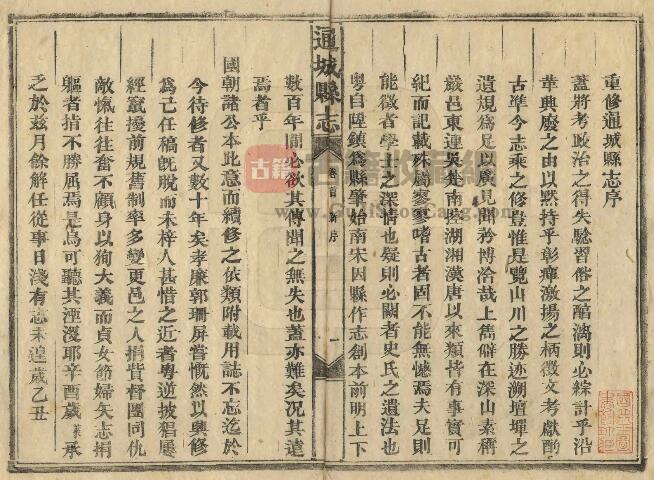 重修通城縣志序
蓋將考政治之得失騐習俗之醕漓則必綜計乎沿
革興廢之由以黙持乎彰癉激揚之柄徵文考獻酌
古準今志乘之修豈惟是覽山川之勝迹溯壇墠之
遺規爲足以廣見聞矜博洽哉上雋僻在深山素稱
嚴邑東連吳楚南陸湖湘漢唐以來類皆有事實可
紀而記載殊屬寥寥嗜古者固不能無憾焉夫足則
能徵者學士之深情也疑則必闕者史氏之遺法也
粤自陞鎮爲縣肇始南宋因縣作志創本前明上下
通城縣志
卷首 新序 一
數百年間必欲其傳聞之無失也蓋亦難矣況其遠
焉者乎
國朝諸公本此意而續修之依類附載用誌不忘迄於
今待修者又數十年矣孝廉郭珊屏嘗慨然以興修
爲己任稿旣脫而未梓人甚惜之近者粤逆披猖屢
經竄擾前規舊制率多變更邑之人捐貲督團同仇
敵愾往往奮不顧身以狥大義而貞女節婦矢志捐
軀者指不勝屈焉是烏可聽其湮沒耶辛酉歲 某承
乏於兹月餘解任從事日淺有志未遑歲乙丑
古籍